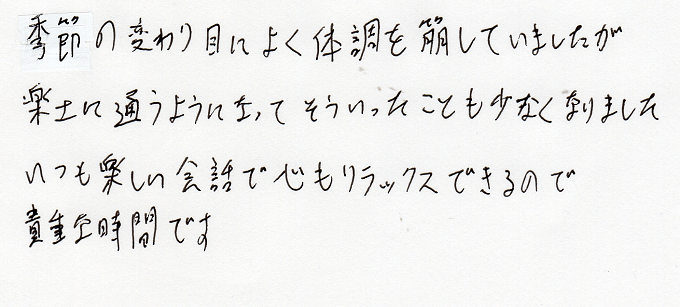 季節の変わり目によく体調を崩していましたが
楽士に通うようになってそういったことも少なくなりました
いつも楽しい会話で心もリラックスできるので
貴重な時間です